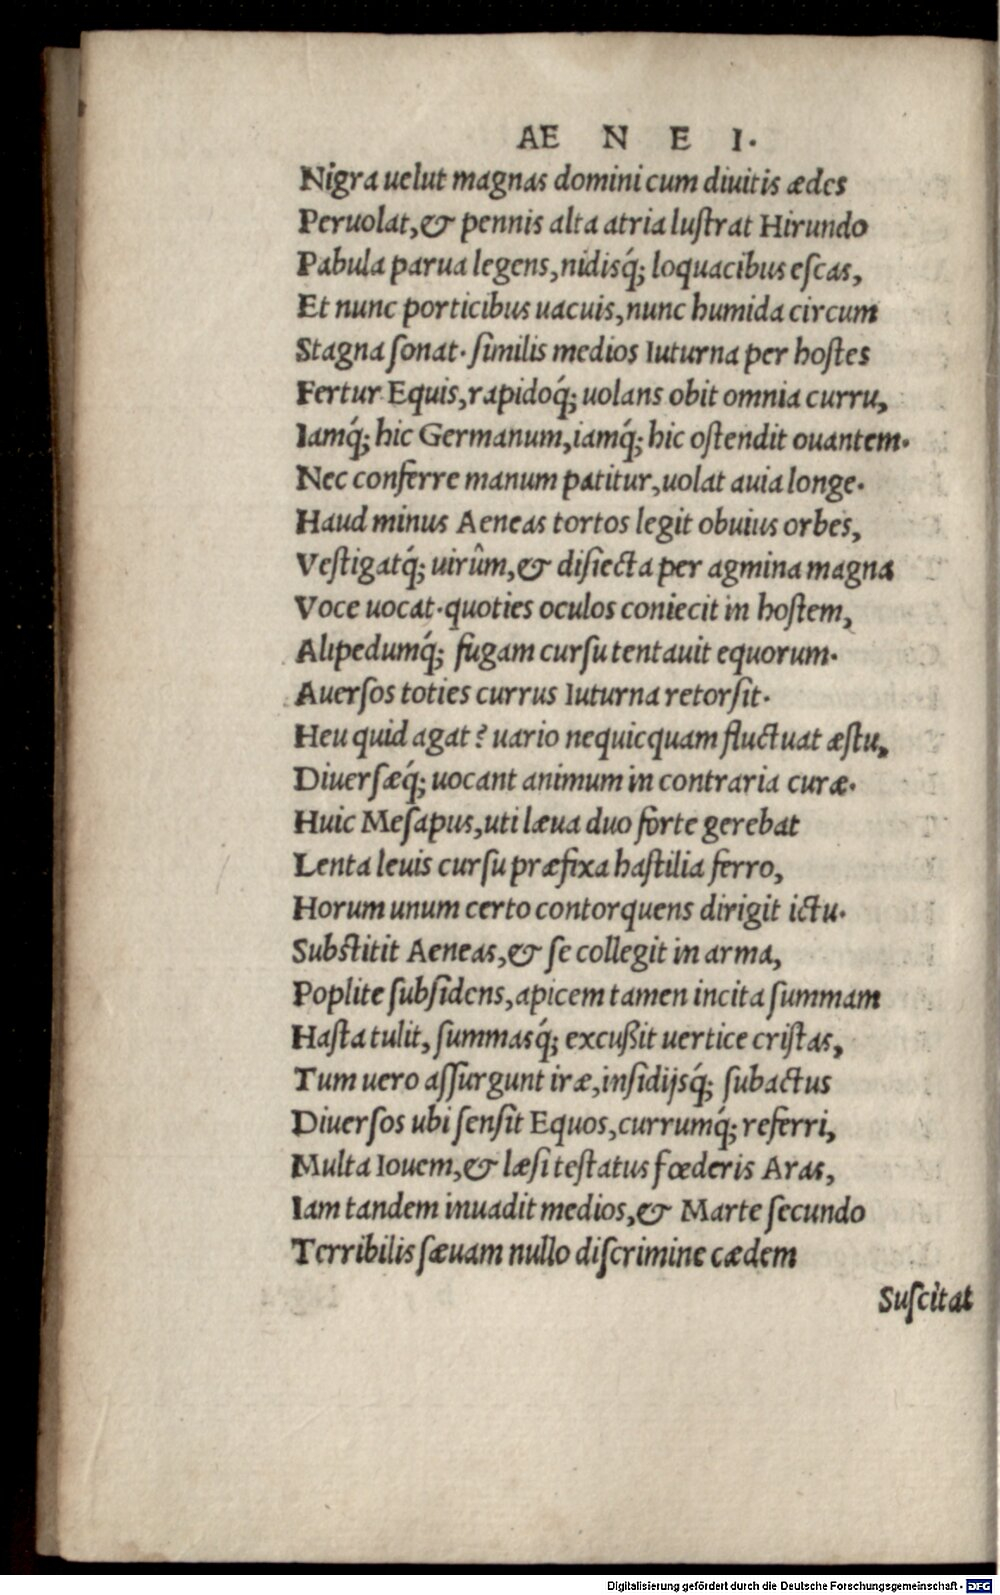 AE N E I.
Nigra uelut magnas domini cum diuitis ædes
Peruolat,& pennis alta atria luſtrat Hirundo
Pabula parua legens,nidisq́; loquacibus eſcas,
Et nunc porticibus uacuis,nunc humida circum
Stagna ſonat. ſimilis medios Iuturna per hoſtes
Fertur Equis,rapidoq́; uolans obit omnia curru,
Iamq́; hic Germanum,iamq́; hic oſtendit ouantem.
Nec conferre manum patitur,uolat auia longe.
Haud minus Aeneas tortos legit obuius orbes,
Veſtigatq́; uirûm,& diſiecta per agmina magna
Voce uocat.quoties oculos coniecit in hoſtem,
Alipedumq́; fugam curſu tentauit equorum.
Auerſos toties currus Iuturna retorſit.
Heu quid agat? uario nequicquam fluctuat æſtu,
Diuerſæq́; uocant animum in contraria curæ.
Huic Meſapus,uti læua duo forte gerebat
Lenta leuis curſu præfixa haſtilia ferro,
Horum unum certo contorquens dirigit ictu.
Subſtitit Aeneas,& ſe collegit in arma,
Poplite ſubſidens,apicem tamen incita ſummam
Haſta tulit, ſummasq́; excußit uertice criſtas,
Tum uero aſſurgunt iræ,inſidijsq́; ſubactus
Diuerſos ubi ſenſit Equos,currumq́; referri,
Multa Iouem,& læſi teſtatus fœderis Aras,
Iam tandem inuadit medios,& Marte ſecundo
Terribilis ſæuam nullo diſcrimine cædem
Suſcitat
Digitalisierung gefördert durch die Deutsche Forschungsgemeinschaft - DFG